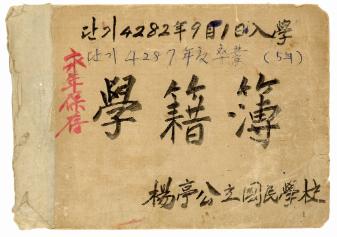 단기4282年9月1日入學
단기4287年度卒業 (5회)
永年保存
學籍簿
楊亭公立國民學校